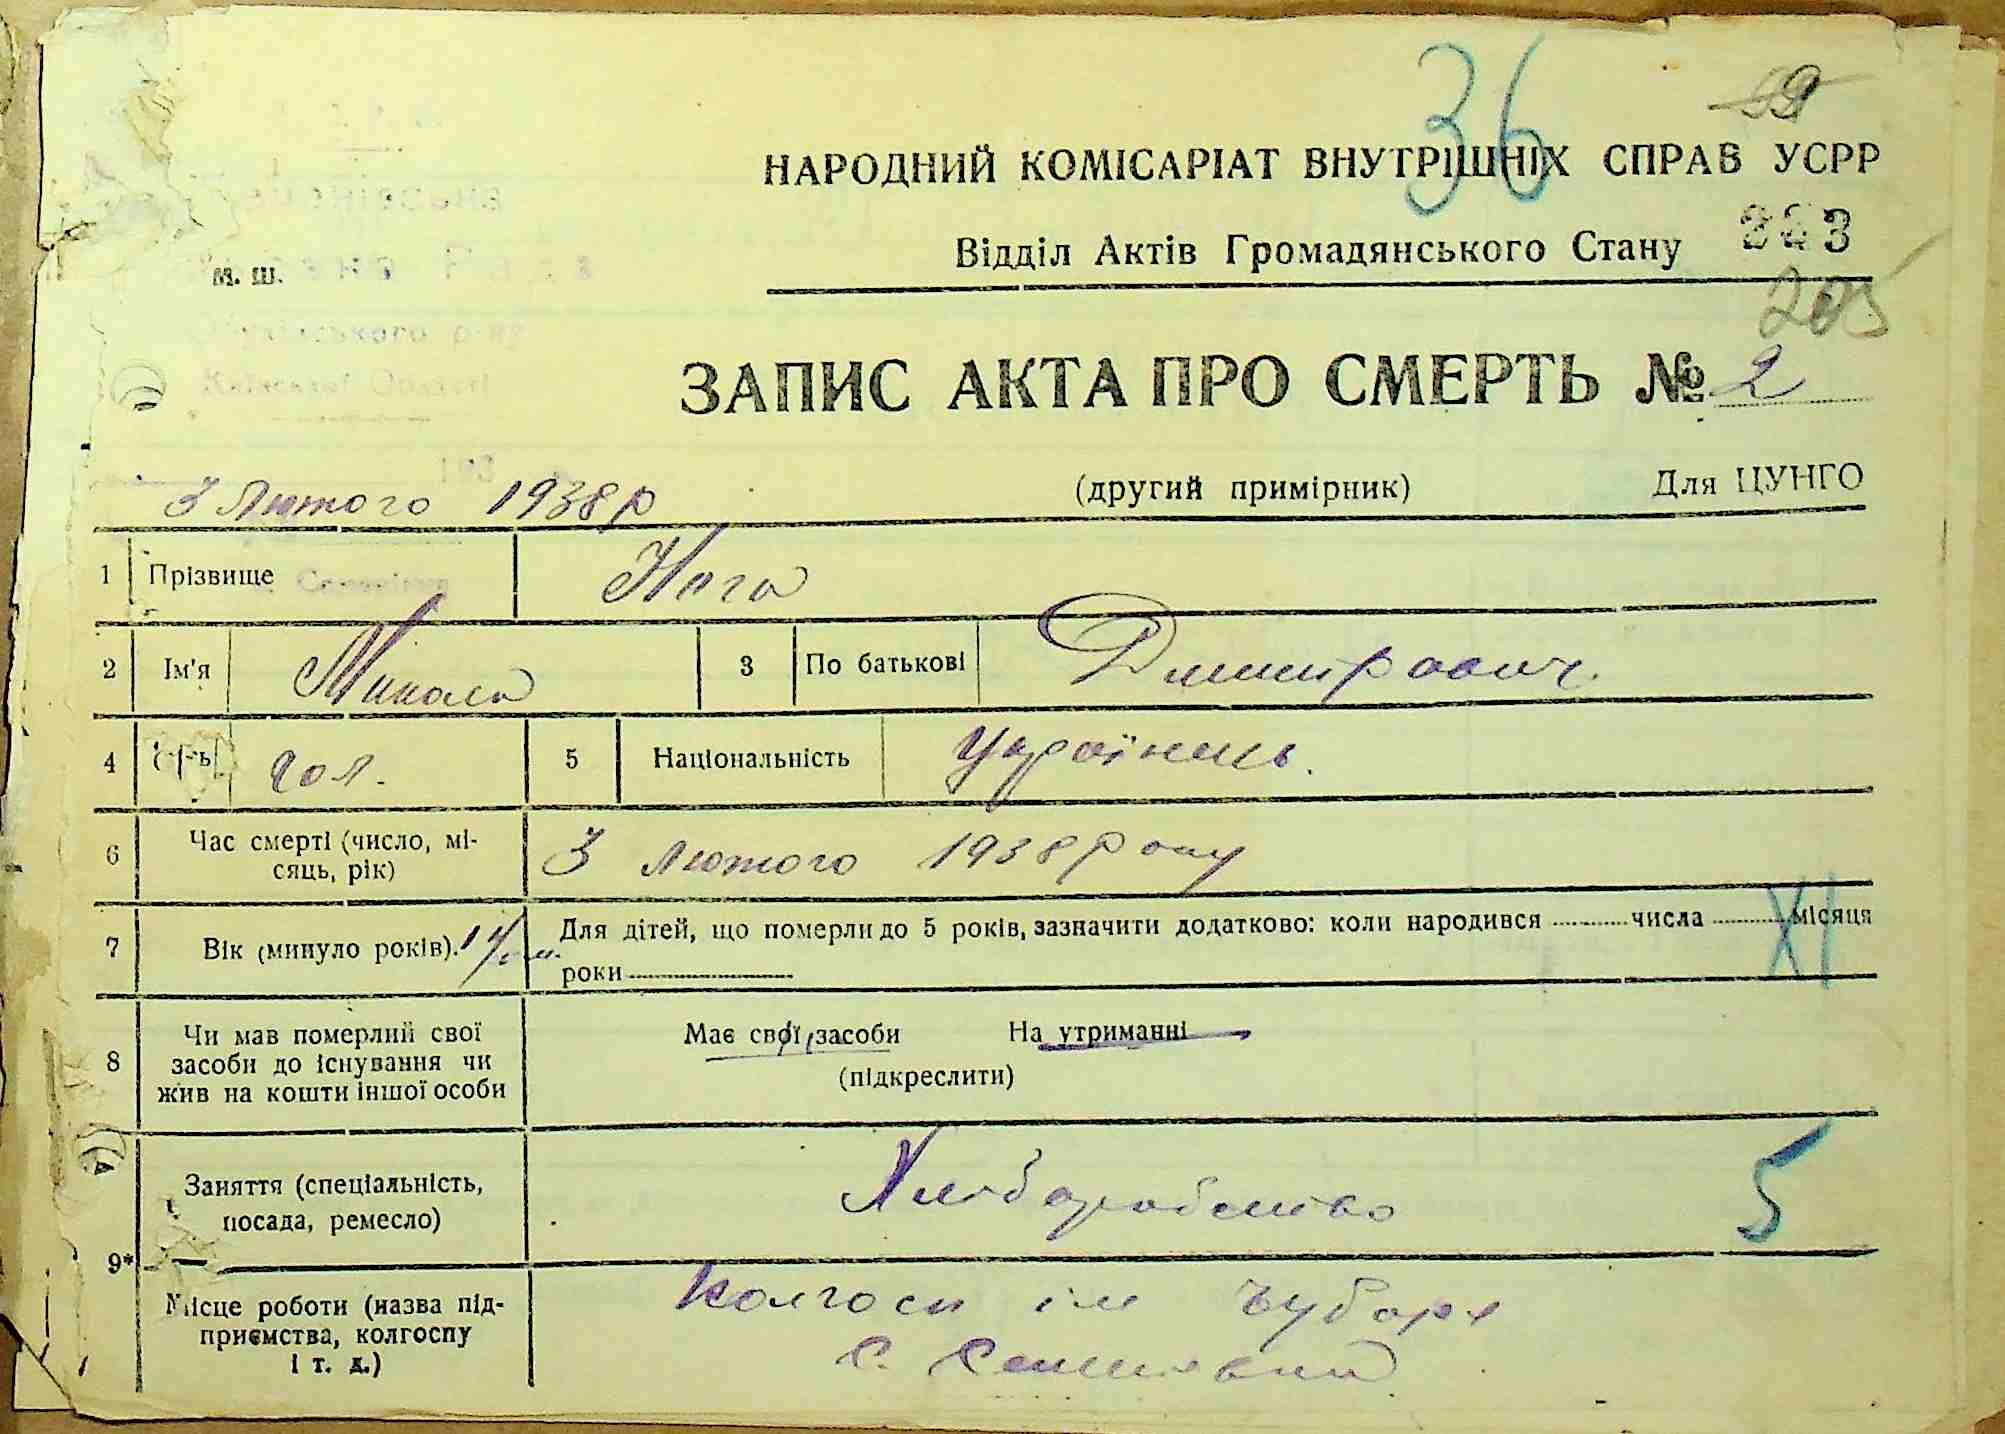 36
99
НАРОДНИЙ КОМІСАРІАТ ВНУТРІШНІХ СПРАВ УСРР
Відділ Актів Громадянського Стану 323
М. Ш.
205
ЗАПИС АКТА ПРО СМЕРТЬ № 2
Київської Області
3 Лютого 1938 р (другий примірник) Для ЦУНГО
1 Прізвище Нога
2 Ім'я Микола 3 По батькові Димирович.
4 чол. 5 Національність Українець.
6 Час смерті (число, мі-
сяць, рік) 3 лютого 1938 року
7 Вік (минуло років).
Для дітей, що померли до 5 років, зазначити додатково: коли народився числа місяця
роки
XI
8 Чи мав померлий свої
засоби до існування чи
жив на кошти іншої особи
Має свої засоби На утриманні
(підкреслити)
9* Заняття (спеціальність,
посада, ремесло) Хліборобство 5
Місце роботи (назва під-
приємства, колгоспу
і т. д.)
Колгосп ім Чубаря
с.